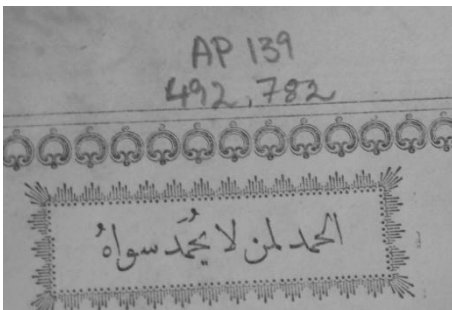 AP 139
492,782
الحمد لمن لا يحُمَد سواهُ